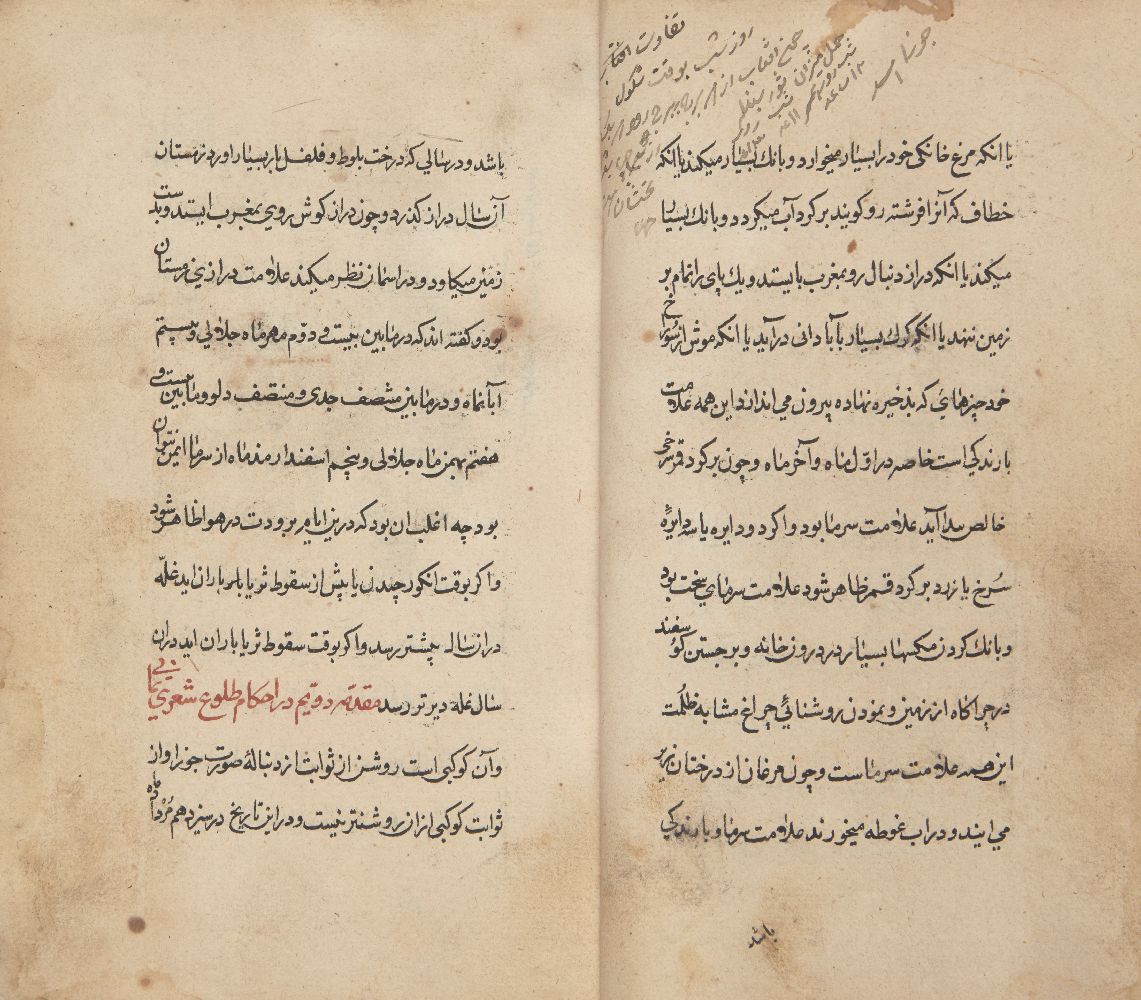 یا انکه مرغ خانکی خود را بسیار میخوارد و بانك بسیار میکند یا انکه
خطاف که آنرا فرشته رو کویند بر کرد آب میکردد و بانك بسیار
میکند یا انکه دراز دنبال رو بمغرب بایستد و یك پای را تمام بر
زمین ننهد یا انکه کرك بسیار بآبادانی درآید یا انکه موش از سوراخ
خود چیزهائی که بذخیره نهاده بیرون می اندازد این همه علامت
بارندکی است خاصه در اول ماه و آخر ماه و چون بر کرد قمر سرخی
خالص پیدا آید علامت سرما بود و اکر دو دایره یا سه دایرهٔ
سرخ یا زرد بر کرد قمر ظاهر شود علامت سرمای سخت بود
و بانك کردن مکسها بسیار در درون خانه و بر جستن کوسفند
در چراکاه از زمین و نمودن روشنائی چراغ مشابه ظلمت
این همه علامت سرماست و چون مرغان از درختان بزیر
می ایند و در اب غوطه میخورند علامت سرما و بارندکی
باشد
باشد و در سالی که درخت بلوط و فلفل بار بسیار اورد زمستان
آن سال دراز کذرد و چون دراز کوش روی بمغرب ایستد و بدست
زمین میکاود و در اسمان نظر میکند علامت درازی زمستان
بود و کفته اند که در مابین بیست و دوم مهرماه جلالی و بیستم
آبانماه و در مابین منتصف جدی و منتصف دلو و مابین بیست و
هفتم بهمن ماه جلالی و پنجم اسفندارمذماه از سرما ایمن نتوان
بود چه اغلب ان بود که درین ایام برودت در هوا ظاهر شود
و اکر بوقت انکور چیدن یا پیش از سقوط ثریا باران اید غلّه
دران سال پیشتر رسد و اکر بوقت سقوط ثریا باران اید دران
سال غله دیرتر رسد مقدمه دویم در احکام طلوع شعری یمانی
و آن کوکبی است روشن از ثوابت از دنبالهٔ صورت جوزا و از
ثوابت کوکبی از ان روشنتر نیست و در این تاریخ در سیزدهم مرداد ماه